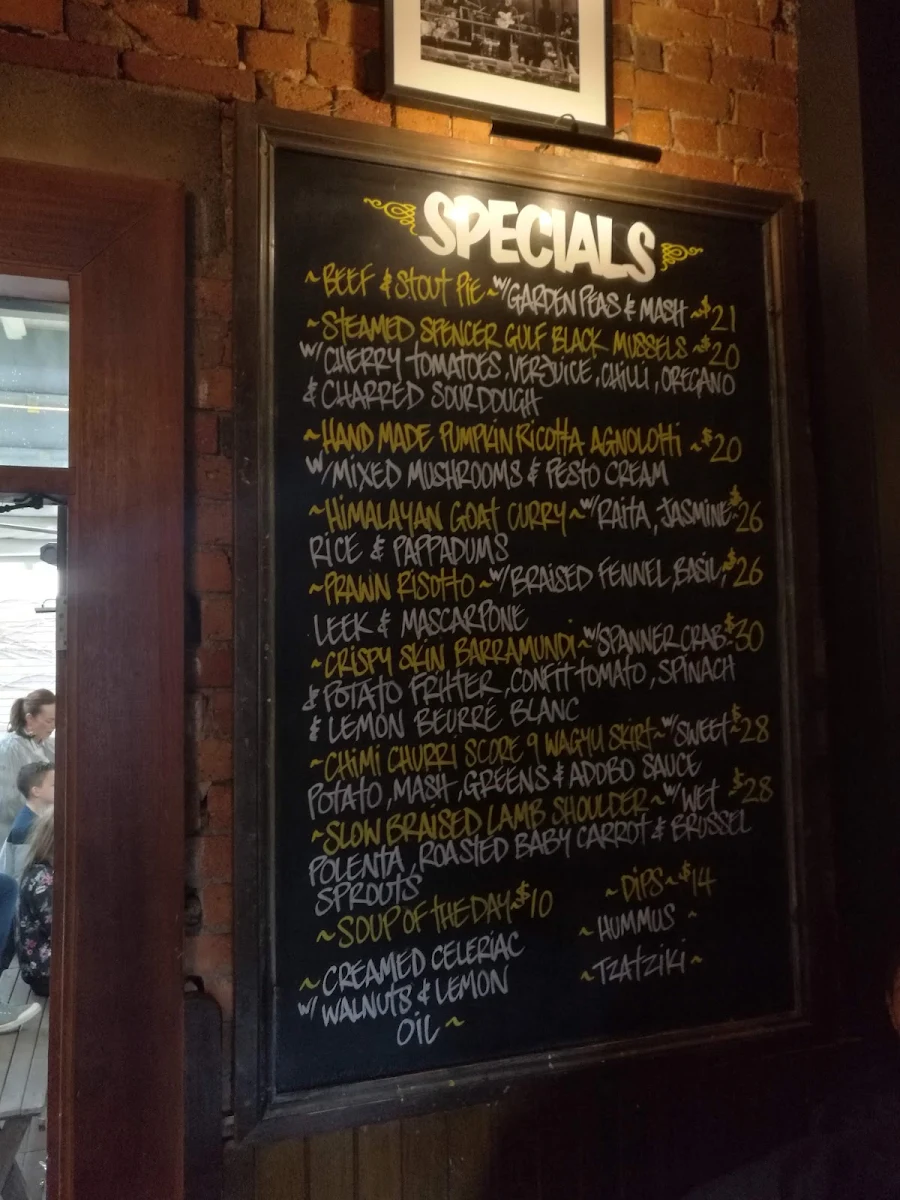 SPECIALS
~BEEF & STOUT PIE~ W/GARDEN PEAS & MASH ~$21
~STEAMED SPENCER GULF BLACK MUSSELS ~$20
W/CHERRY TOMATOES, VERJUICE, CHILLI, OREGANO
& CHARRED SOURDOUGH
~HAND MADE PUMPKIN RICOTTA AGNOLOTTI ~$20
W/MIXED MUSHROOMS & PESTO CREAM
~HIMALAYAN GOAT CURRY~W/RAITA, JASMINE~$26
RICE & PAPPADUMS
~PRAWN RISOTTO ~W/BRAISED FENNEL, BASIL, ~$26
LEEK & MASCARPONE
~CRISPY SKIN BARRAMUNDI~W/SPANNER CRAB~$30
& POTATO FRITTER, CONFIT TOMATO, SPINACH
& LEMON BEURRÉ BLANC
~CHIMI CHURRI SCORE 9 WAGYU SKIRT~W/SWEET~$28
POTATO, MASH, GREENS & ADOBO SAUCE
~SLOW BRAISED LAMB SHOULDER~W/WET ~$28
POLENTA, ROASTED BABY CARROT & BRUSSEL
SPROUTS
~SOUP OF THE DAY~$10
~CREAMED CELERIAC
W/ WALNUTS & LEMON
OIL~
~DIPS~$14
~HUMMUS~
~TZATZIKI~